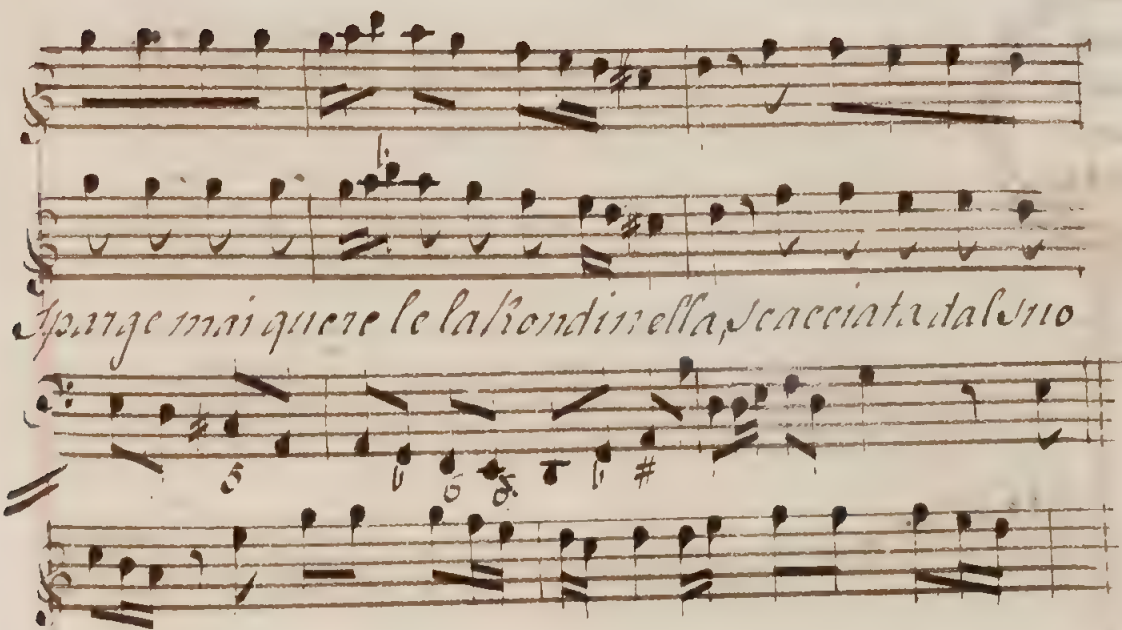 Sparge mai quere le la Rondinella, scacciata dal suo